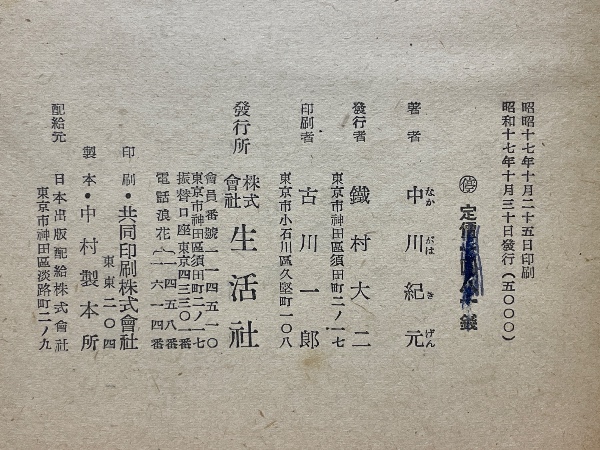 昭昭十七年十月二十五日印刷
昭和十七年十月三十日發行(五〇〇〇)
停 定價 錢
著者 中川紀元
なか がは き げん
發行者 鐵村大二
東京市神田區須田町二ノ一七
印刷者 古川一郎
東京市小石川區久堅町一〇八
發行所 株式會社 生活社
會員番號一一四五一〇
東京市神田區須田町二ノ一七
振替口座東京四三三〇一番
電話浪花
印刷・共同印刷株式會社
東東二〇四
製本・中村製本所
配給元 日本出版配給株式會社
東京市神田區淡路町二ノ九